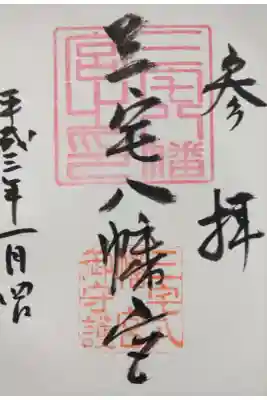 参拝
三宅八幡宮
平成三年一月四日
三宅八幡
宮之印
三宅八
幡宮
御守護